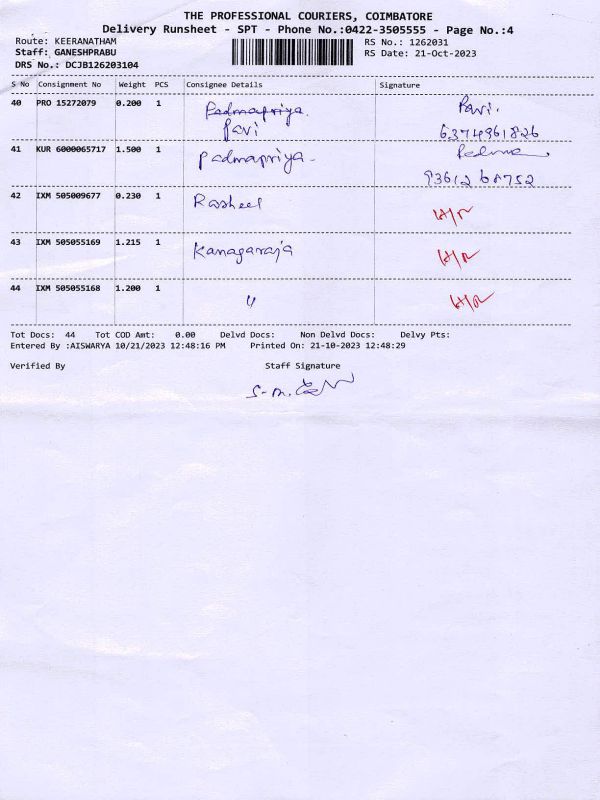 THE PROFESSIONAL COURIERS, COIMBATORE
Delivery Runsheet - SPT - Phone No.:0422-3505555 - Page No.:4
Route: KEERANATHAM RS No.: 1262031
Staff: GANESHPRABU RS Date: 21-Oct-2023
DRS No.: DCJB126203104
S No Consignment No Weight PCS Consignee Details Signature
40 PRO 15272079 0.200 1 Padmapriya Pavi.
Pavi 6374961826
41 KUR 6000065717 1.500 1 Padmapriya - Padma
9361268752
42 IXM 505009677 0.230 1 Rasheel
43 IXM 505055169 1.215 1 Kanagaraja
44 IXM 505055168 1.200 1 "
Tot Docs: 44 Tot COD Amt: 0.00 Delvd Docs: Non Delvd Docs: Delvy Pts:
Entered By :AISWARYA 10/21/2023 12:48:16 PM Printed On: 21-10-2023 12:48:29
Verified By Staff Signature